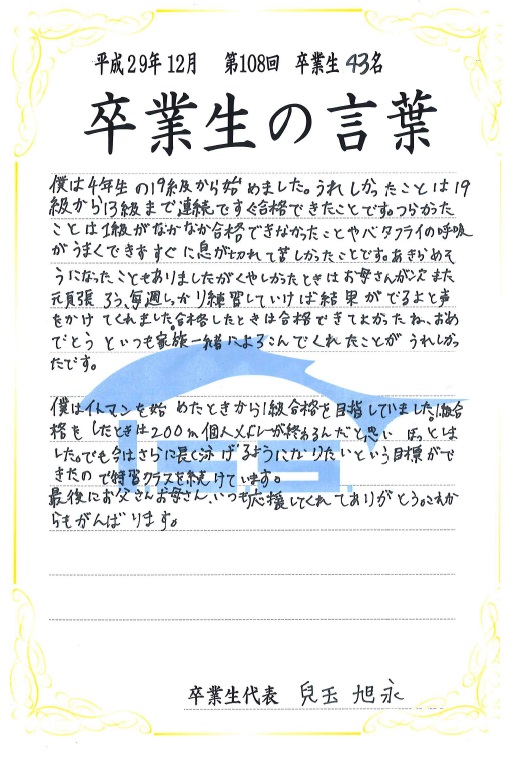 平成29年12月　第108回　卒業生 43名
卒業生の言葉
僕は4年生の19級から始めました。うれしかったことは19
級から13級まで連続ですぐ合格できたことです。つらかった
ことは1級がなかなか合格できなかったことやバタフライの呼吸
がうまくできずすぐに息が切れて苦しかったことです。あきらめそ
うになったこともありましたがくやしかったときはお母さんが次また
頑張ろう、毎週しっかり練習していけば結果がでるよと声
をかけてくれました。合格したときは合格できてよかったね、おめ
でとうといつも家族一緒によろこんでくれたことがうれしかっ
たです。
僕はイトマンを始めたときから1級合格を目指していました。1級合
格をしたときは200m個人メドレーが終わるんだと思いほっとしま
した。でも今はさらに長く泳げるようになりたいという目標がで
きたので特習クラスを続けています。
最後にお父さんお母さん、いつも応援してくれてありがとう。これか
らもがんばります。
卒業生代表　兒玉 旭永